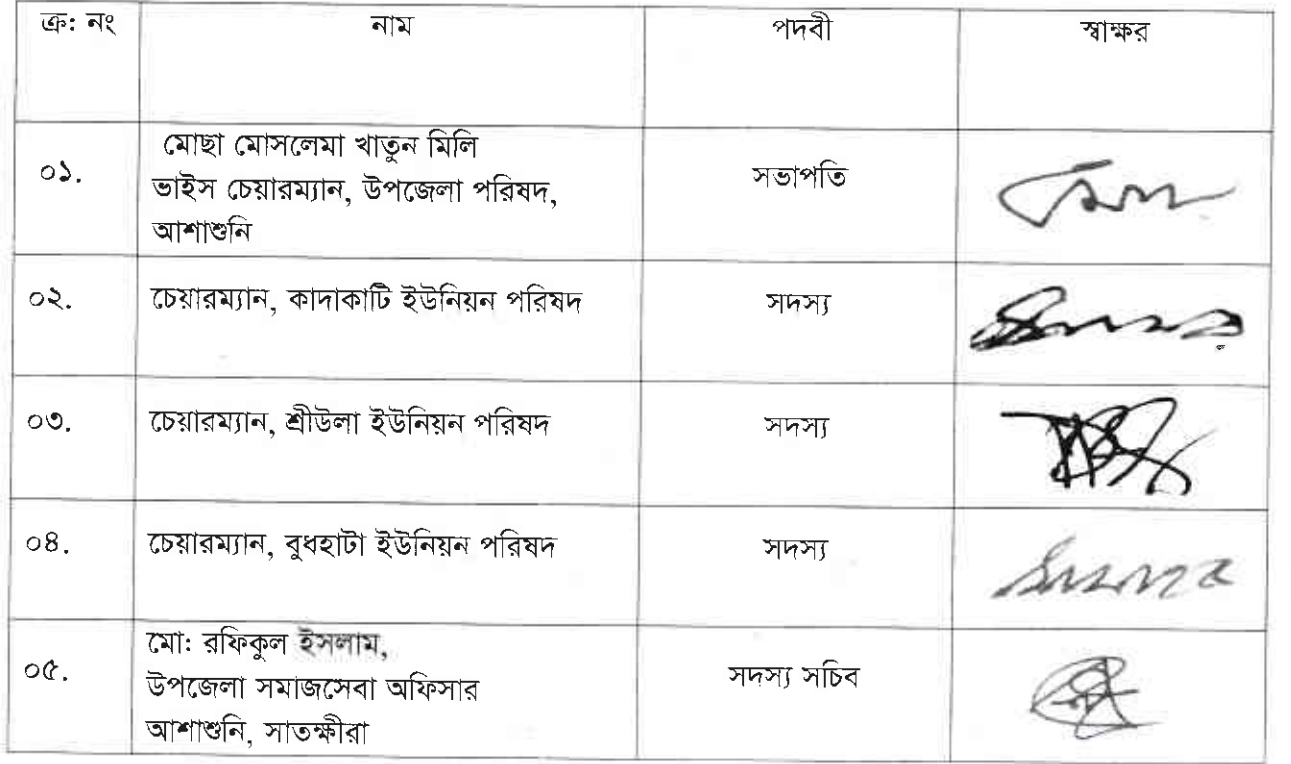 ক্র: নং নাম পদবী স্বাক্ষর
০১. মোছা মোসলেমা খাতুন মিলি
ভাইস চেয়ারম্যান, উপজেলা পরিষদ,
আশাশুনি
সভাপতি
০২. চেয়ারম্যান, কাদাকাটি ইউনিয়ন পরিষদ সদস্য
০৩. চেয়ারম্যান, শ্রীউলা ইউনিয়ন পরিষদ সদস্য
০৪. চেয়ারম্যান, বুধহাটা ইউনিয়ন পরিষদ সদস্য
০৫. মো: রফিকুল ইসলাম,
উপজেলা সমাজসেবা অফিসার
আশাশুনি, সাতক্ষীরা
সদস্য সচিব